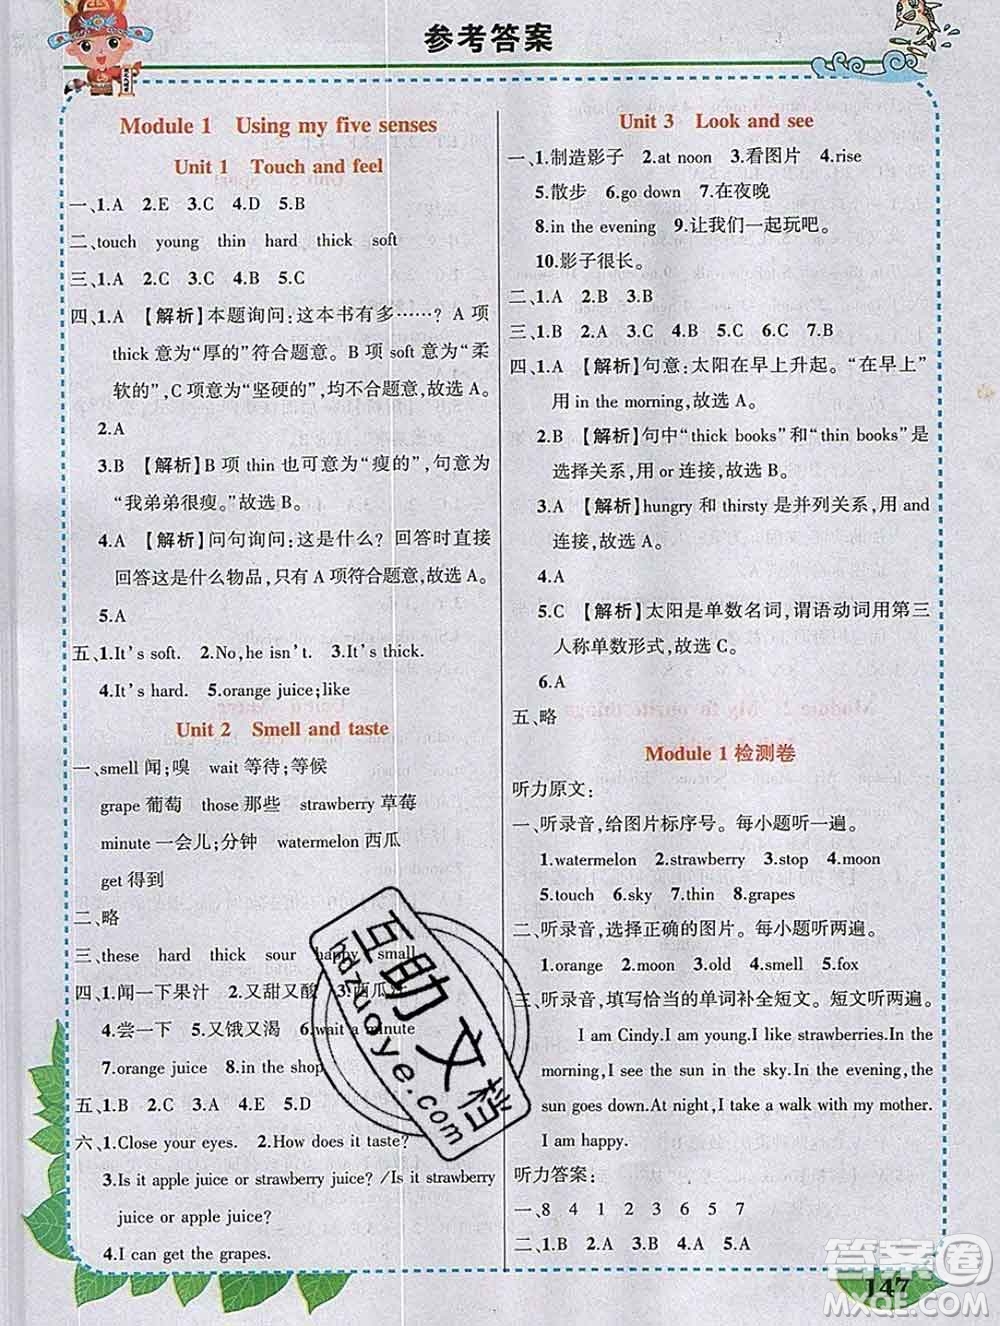 参考答案
Module 1 Using my five senses
Unit 1 Touch and feel
一、1.A 2.E 3.C 4.D 5.B
二、touch young thin hard thick soft
三、1.A 2.B 3.C 4.B 5.C
四、1.A 【解析】本题询问:这本书有多……? A 项
thick 意为“厚的”符合题意。B 项 soft 意为“柔
软的”,C 项意为“坚硬的”,均不合题意,故选 A。
2.A
3.B 【解析】B 项 thin 也可意为“瘦的”,句意为
“我弟弟很瘦。”故选 B。
4.A 【解析】问句询问:这是什么? 回答时直接
回答这是什么物品,只有 A 项符合题意,故选 A。
5.A
五、1.It's soft. 2.No,he isn't. 3.It's thick.
4.It's hard. 5.orange juice;like
Unit 2 Smell and taste
一、smell 闻;嗅 wait 等待;等候
grape 葡萄 those 那些 strawberry 草莓
minute 一会儿;分钟 watermelon 西瓜
get 得到
二、略
三、these hard thick sour happy small
四、1.闻一下果汁 2.又甜又酸 3.西瓜
4.尝一下 5.又饿又渴 6.wait a minute
7.orange juice 8.in the shop
五、1.B 2.C 3.A 4.E 5.D
六、1.Close your eyes. 2.How does it taste?
3.Is it apple juice or strawberry juice? /Is it strawberry
juice or apple juice?
4.I can get the grapes.
Unit 3 Look and see
一、1.制造影子 2.at noon 3.看图片 4.rise
5.散步 6.go down 7.在夜晚
8.in the evening 9.让我们一起玩吧。
10.影子很长。
二、1.A 2.B 3.B
三、1.B 2.A 3.C 4.B 5.C 6.C 7.B
四、1.A 【解析】句意:太阳在早上升起。“在早上”
用 in the morning,故选 A。
2.B 【解析】句中“thick books”和“thin books”是
选择关系,用 or 连接,故选 B。
3.A 【解析】hungry 和 thirsty 是并列关系,用 and
连接,故选 A。
4.A
5.C 【解析】太阳是单数名词,谓语动词用第三
人称单数形式,故选 C。
6.A
五、略
Module 1 检测卷
听力原文:
一、听录音,给图片标序号。每小题听一遍。
1.watermelon 2.strawberry 3.stop 4.moon
5.touch 6.sky 7.thin 8.grapes
二、听录音,选择正确的图片。每小题听两遍。
1.orange 2.moon 3.old 4.smell 5.fox
三、听录音,填写恰当的单词补全短文。短文听两遍。
I am Cindy.I am young.I like strawberries.In the
morning,I see the sun in the sky.In the evening,the
sun goes down.At night,I take a walk with my mother.
I am happy.
听力答案:
一、8 4 1 2 3 5 6 7
二、1.B 2.B 3.A 4.B 5.A
147
互助文档
hdzuoye.com
答案圈
MXQE.COM